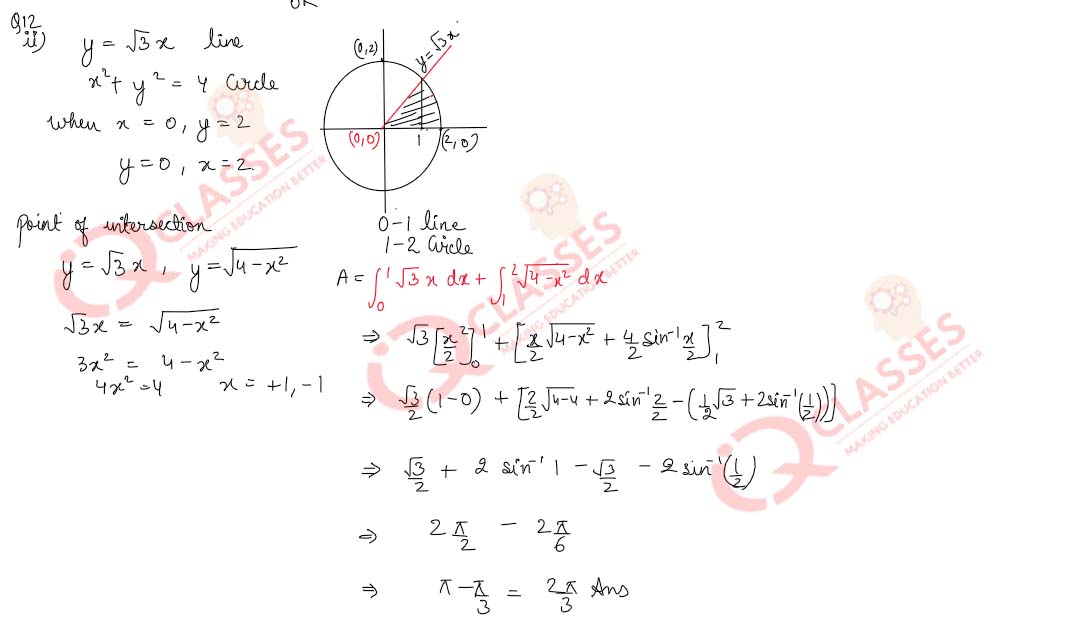 OR
Q12
ii) y = √3 x line
x² + y² = 4 Circle
when x = 0, y = 2
y = 0, x = 2.
(0,2)
y = √3x
(0,0)
1
(2,0)
point of intersection
y = √3 x , y = √(4-x²)
√3x = √(4-x²)
3x² = 4-x²
4x² = 4 x = +1, -1
0-1 line
1-2 Circle
A = ∫₀¹ √3 x dx + ∫₁² √(4-x²) dx
⇒ √3 [x²/2]₀¹ + [x/2 √(4-x²) + 4/2 sin⁻¹ x/2]₁²
⇒ √3/2 (1-0) + [2/2 √(4-4) + 2sin⁻¹ 2/2 - (1/2 √3 + 2sin⁻¹(1/2))]
⇒ √3/2 + 2 sin⁻¹ 1 - √3/2 - 2 sin⁻¹(1/2)
⇒ 2 π/2 - 2π/6
⇒ π - π/3 = 2π/3 Ans
IQ CLASSES
MAKING EDUCATION BETTER
IQ CLASSES
MAKING EDUCATION BETTER
IQ CLASSES
MAKING EDUCATION BETTER